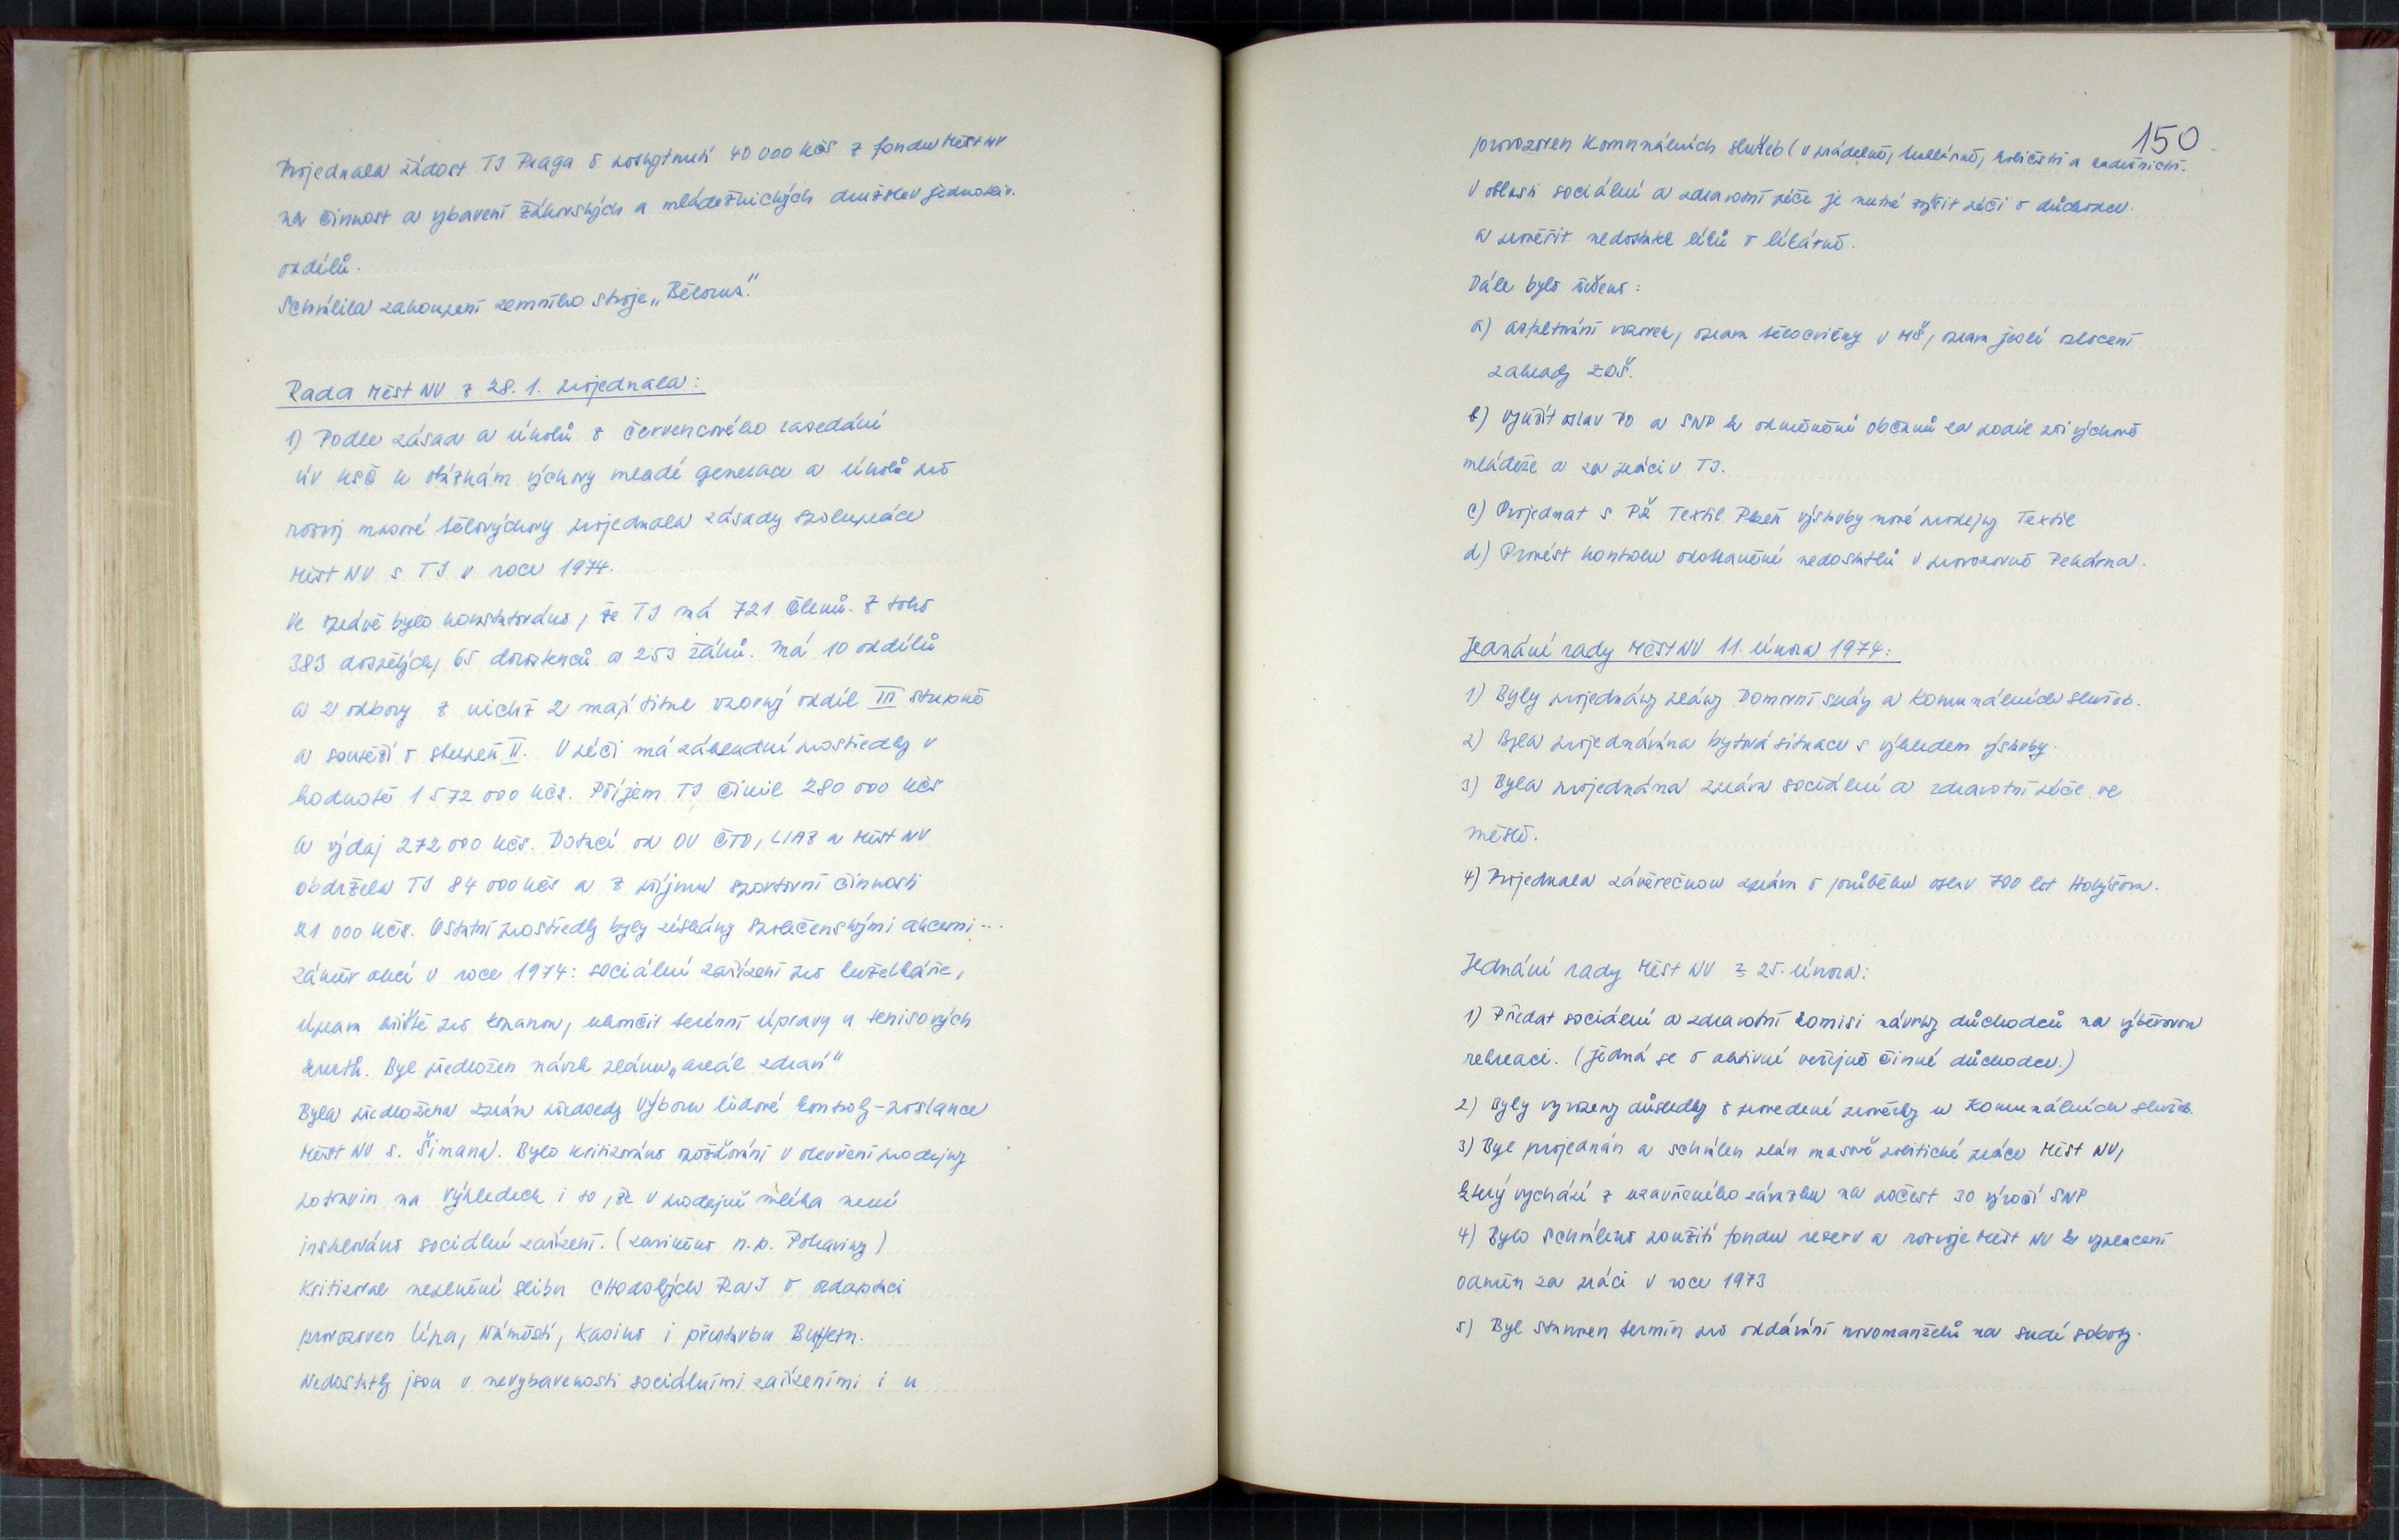 Projednala žádost TJ Praga o poskytnutí 40 000 Kčs z fondu MěstNV
na činnost a vybavení žákovských a mládežnických družstev jednotliv.
oddílů.
Schválila zakoupení zemního stroje „Bělorus".
Rada Měst NV z 28. 1. projednala:
1) Podle zásad a úkolů z červencového zasedání
ÚV KSČ k otázkám výchovy mladé generace a úkolů pro
rozvoj masové tělovýchovy projednala zásady spolupráce
Měst NV s TJ v roce 1974.
Ve zprávě bylo konstatováno, že TJ má 721 členů. Z toho
383 dospělých, 65 dorostenců a 253 žáků. Má 10 oddílů
a 2 odbory z nichž 2 mají titul vzorný oddíl III stupně
a soutěží o stupeň II. V péči má základní prostředky v
hodnotě 1 572 000 Kčs. Příjem TJ činil 280 000 Kčs
a výdaj 272 000 Kčs. Dotací od OV ČTO, LIAZ a Měst NV
obdržela TJ 84 000 Kčs a z příjmu sportovní činnosti
21 000 Kčs. Ostatní prostředky byly získány společenskými akcemi...
Záměr akcí v roce 1974: sociální zařízení pro kuželkáře,
úprava hřiště pro kopanou, ukončit terénní úpravy u tenisových
kurtů. Byl předložen návrh plánu „areál zdraví"
Byla předložena zpráva předsedy Výboru lidové kontroly - poslance
Měst NV s. Šimana. Bylo kritizováno opožďování v otevření prodejny
potravin na Výhledech i to, že v prodejně mléka není
instalováno sociální zařízení. (zaviněno n.p. Potraviny)
Kritizoval neplnění slibu Chodských RaJ o adaptaci
provozoven Lípa, Náměstí, Kasino i přestavbu Buffetu.
Nedostatky jsou v nevybavenosti sociálními zařízeními i u
150
provozoven Komunálních služeb (v prádelně, kotlárně, holičství a kadeřnictví.
V oblasti sociální a zdravotní péče je nutné zvýšit péči o důchodce
a prověřit nedostatek léků v lékárně.
Dále bylo řešeno:
a) asfaltování vozovek, oprava tělocvičny v MŠ, oprava jeslí oplocení
zahrady ZDŠ.
b) Využít oslav PO a SNP k odměnění občanů za podíl při výchově
mládeže a za práci v TJ.
c) Projednat s PŘ Textil Plzeň výstavby nové prodejny Textil
d) Provést kontrolu odstranění nedostatků v provozovně Pekárna.
Jednání rady MěstNV 11. února 1974:
1) Byly projednány plány Domovní správy a Komunálních služeb.
2) Byla projednávána bytová situace s výhledem výstavby.
3) Byla projednána zpráva sociální a zdravotní péče ve
městě.
4) Projednala závěrečnou zprávu o průběhu oslav 700 let Holýšova.
Jednání rady Měst NV z 25. února:
1) Předat sociální a zdravotní komisi návrhy důchodců na výběrovou
rekreaci. (Jedná se o aktivní veřejně činné důchodce.)
2) Byly vyvozeny důsledky z provedené prověrky u Komunálních služeb.
3) Byl projednán a schválen plán masově politické práce Měst NV,
který vychází z uzavřeného závazku na počest 30 výročí SNP
4) Bylo schváleno použití fondu reserv a rozvoje Měst NV k vyplacení
odměn za práci v roce 1973
5) Byl stanoven termín pro oddávání novomanželů na sudé soboty.